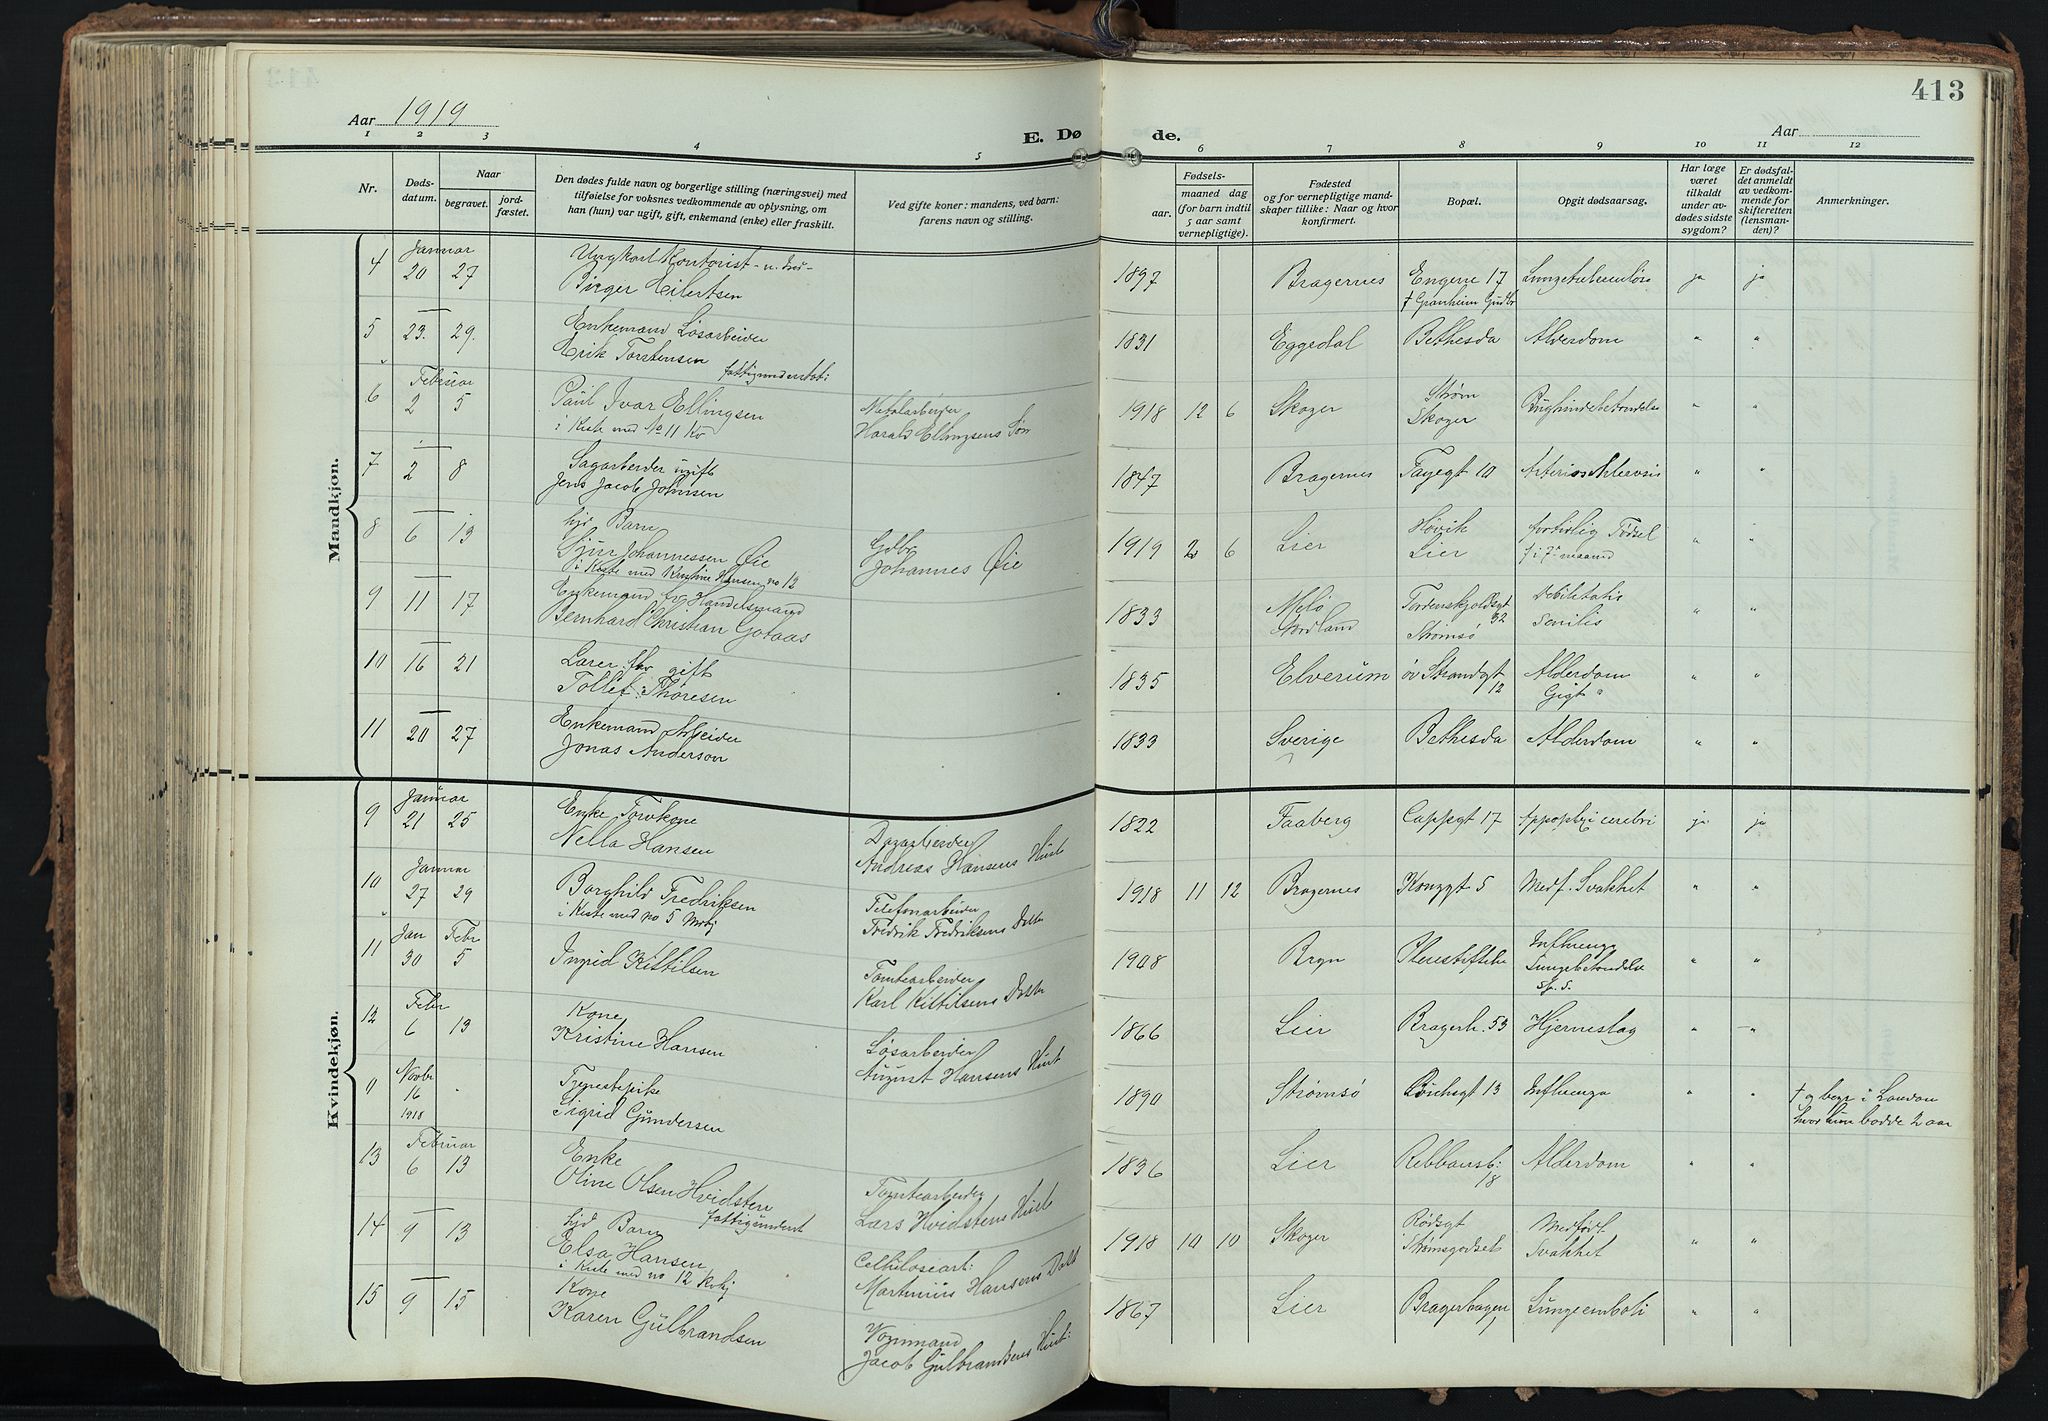 413
Aar 1919
E. Dø de.
Aar
1 2 3 4 5 6 7 8 9 10 11 12
Nr.
Døds-
datum.
Naar
begravet.
jord-
fæstet.
Den dødes fulde navn og borgerlige stilling (næringsvei) med
tilføielse for voksnes vedkommende av oplysning, om
han (hun) var ugift, gift, enkemand (enke) eller fraskilt.
Ved gifte koner: mandens, ved barn:
farens navn og stilling.
Fødsels-
aar.
maaned dag
(for barn indtil
5 aar samt
vernepligtige).
Fødested
og for vernepligtige mand-
skaper tillike: Naar og hvor
konfirmert.
Bopæl.
Opgit dødsaarsag.
Har læge
været
tilkaldt
under av-
dødes sidste
sygdom?
Er dødsfal-
det anmeldt
av vedkom-
mende for
skifteretten
(lensman-
den)?
Anmerkninger.
Mandkjøn.
4 Januar 20 27 Ungkarl Kontorist
Birger Eilertsen 1897 Bragernes Engene 17 ja ja
5 23. 29. Enkemand Løsarbeider
Erik Torstensen 1831 Eggedal Bethesda Alderdom " "
6 Februar 2 5 Paul Ivar Ellingsen
i Kiste med No 11 Kv
Harald Ellingsens Søn 1918 12 6 Skoger Strøm
Skoger " "
7 2 8 Sagarbeider ugift
Jens Jacob Johnsen 1847 Bragernes 10 " "
8 6 13 Barn
Sjur Johannessen Øie
i Kiste med Kristine Hansen no 12
Gdbr
Johannes Øie 1919 2 6 Lier Høvik
Lier fortidlig Fødsel
i 7' maaned " "
9 11 17 Enkemand fv Handelsmand
Bernhard Christian Gotaas 1833 Melø
Nordland Tordenskjoldsgt
32
Strømsø Debilitatis
Senilis " "
10 16 21 gift
Tollef Thoresen 1835 Elverum øv Strandgt
12 Alderdom
Gigt " "
11 20 27 Enkemand Arbeider
Jonas Anderson 1833 Sverige Bethesda Alderdom " "
Kvindekjøn.
9 Januar 21 25 Enke
Nella Hansen
Andreas Hansens Hust 1822 Faaberg Cappgt 17 cerebri ja ja
10 Januar 27 29 Borghild Fredriksen
i Kiste med no 5
Telefonarbeider
Fredrik Fredriksens Datter 1918 11 12 Bragernes 5 Medf. Svakhet " "
11 Jan 30 Febr 5 Ingrid Kittilsen
Tomtearbeider
Karl Kittilsens Datter 1908 Bryn Influenza
Lungebetændelse " "
12 Febr 6 13 Kone
Kristine Hansen
Løsarbeider
August Hansens Hust 1866 Lier Bragerh. 53 Hjerneslag " "
0 Novbr 16 1918 Tjenestepike
Sigrid Gundersen 1890 Strømsø 13 Influenza " " † og begr i London
hvor hun bodde 2 aar
13 Februar 6 13 Enke
Oline Olsen Hvidsten
fattigunderst
Tomtearbeider
Lars Hvidstens Hust 1836 Lier 18 Alderdom " "
14 9 13 Barn
Elsa Hansen
i Kiste med no 12
Martinius Hansens Datt 1918 10 10 Skoger Rødsgt
Strømsgodset Medfødt
Svakhet " "
15 9 15 Kone
Karen Gulbrandsen
Vognmand
Jacob Gulbrandsens Hust: 1867 Lier Bragerhagen Lungeemboli " "